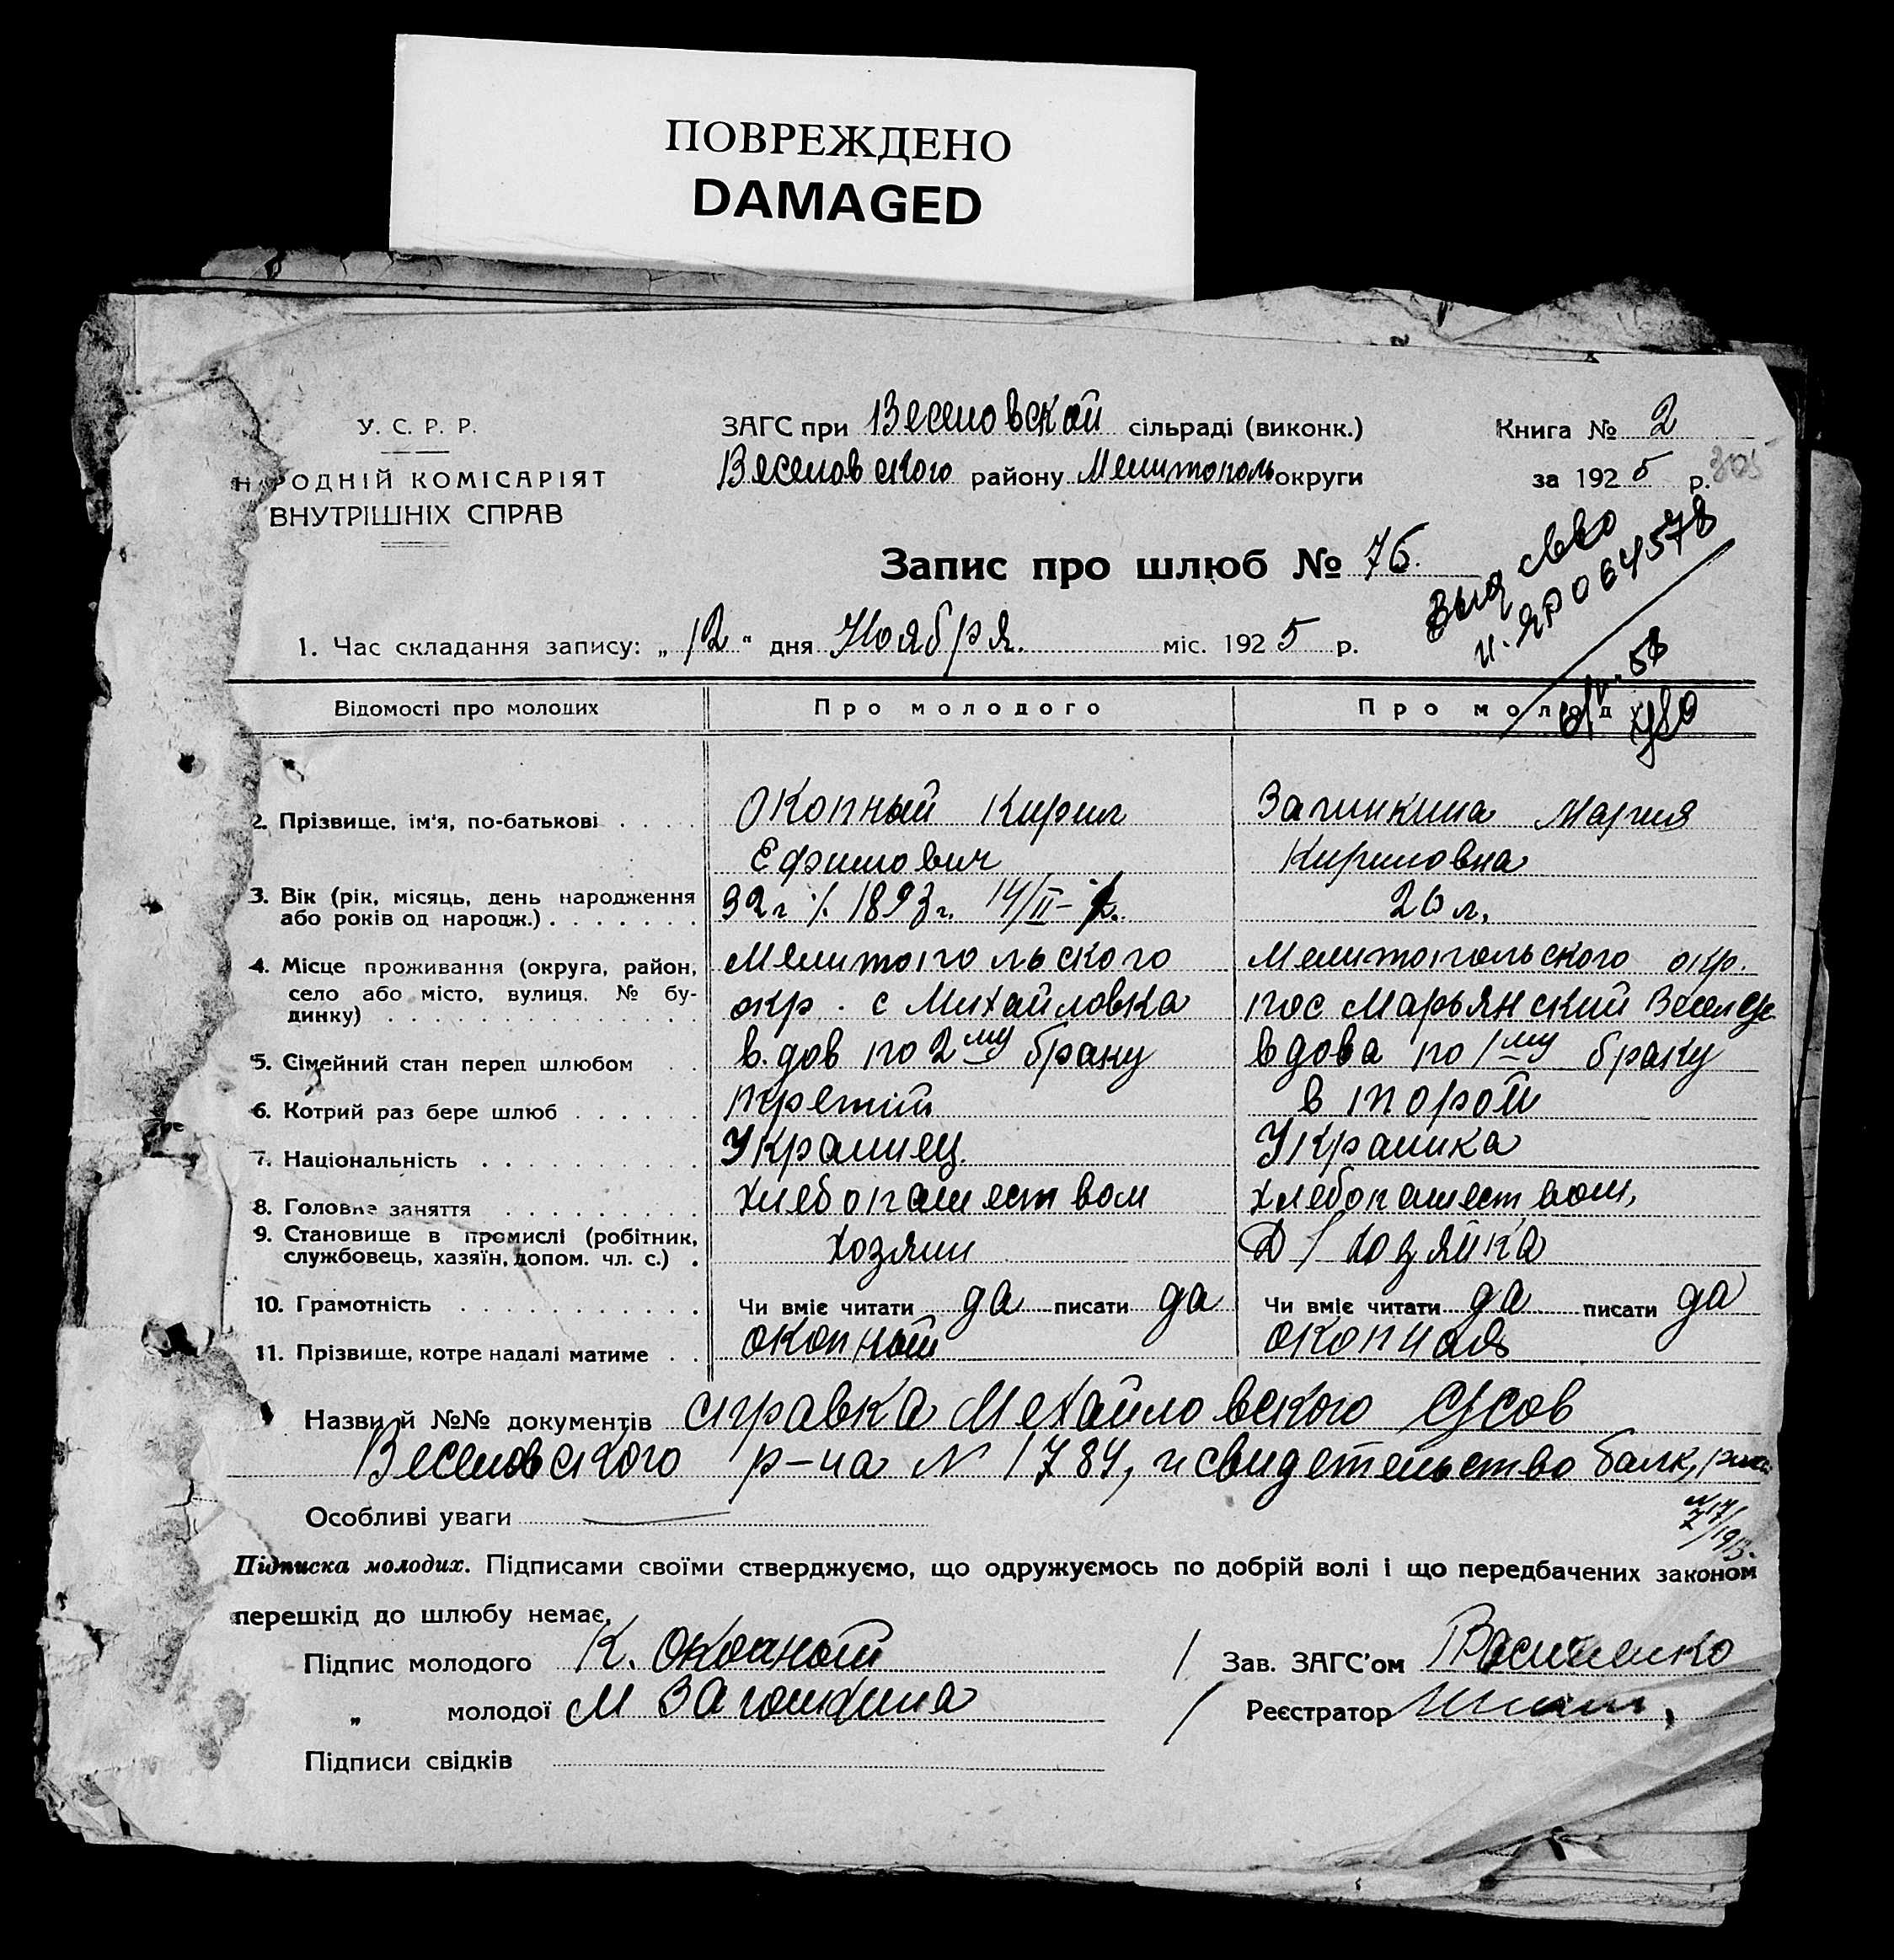 ПОВРЕЖДЕНО
DAMAGED
У. С. Р. Р.
НАРОДНІЙ КОМІСАРІЯТ
ВНУТРІШНІХ СПРАВ
ЗАГС при Веселовской сільраді (виконк.)
Веселовского району Мелитополь округи
Книга № 2
за 1925 р.
305
Запис про шлюб № 76.
выд св во
58
1. Час складання запису: „12“ дня Ноября. міс. 1925 р.
Відомості про молодих Про молодого Про молоду
2. Прізвище, ім'я, по-батькові Окопный Кирил Загинкина Мария
Ефимович Кириловна
3. Вік (рік, місяць, день народження або років од народж.) 32 г 1893 г. 14/II 26 л.
4. Місце проживання (округа, район, Мелитопольского Мелитопольского окр.
село або місто, вулиця, № бу- окр. с Михайловка пос Марьянский Весел
динку)
5. Сімейний стан перед шлюбом вдов по 2му браку вдова по 1му браку
6. Котрий раз бере шлюб третий второй
7. Національність Украинец Украинка
8. Головне заняття хлебопашеством хлебопашеством,
9. Становище в промислі (робітник, службовець, хазяїн, допом. чл. с.) хозяин Д/хозяйка
10. Грамотність Чи вміє читати да писати да Чи вміє читати да писати да
11. Прізвище, котре надалі матиме Окопный Окопная
Назви й №№ документів справка Михайловского
Веселовского р-на N 1784, и свидетельство
Особливі уваги
Підписка молодих. Підписами своїми стверджуємо, що одружуємось по добрій волі і що передбачених законом
перешкід до шлюбу немає.
Підпис молодого К. Окопный Зав. ЗАГС'ом Василенко
„ молодої М Загинкина Реєстратор
Підписи свідків